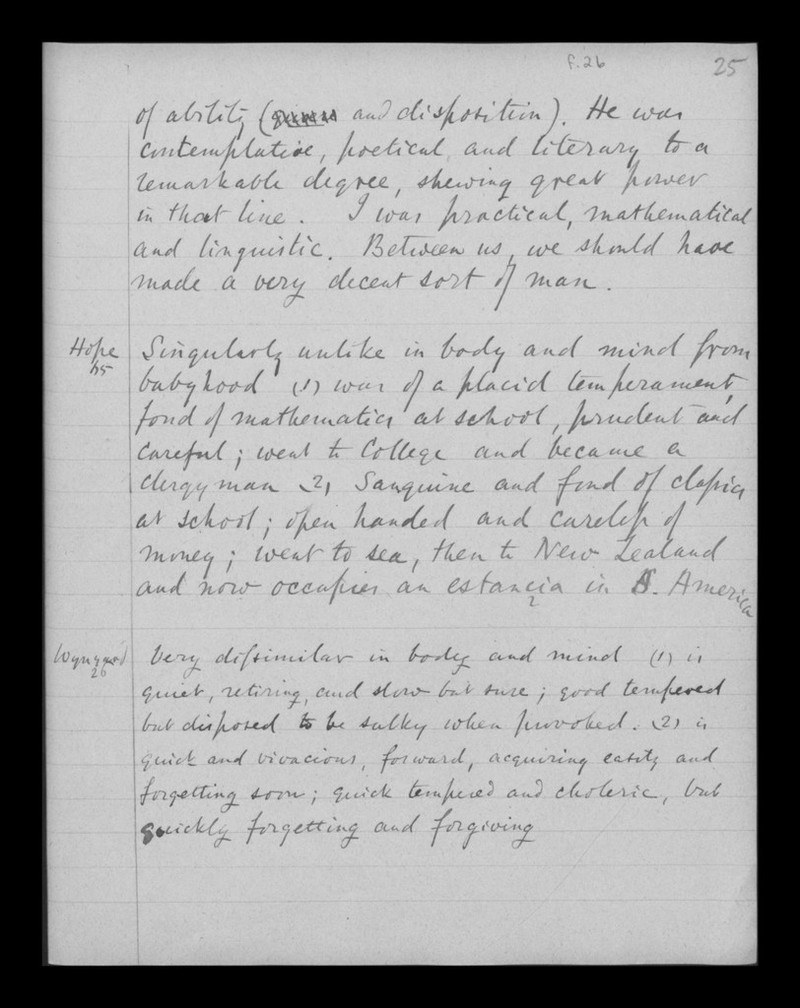 f.26
25
of ability ( and disposition). He was
contemplative, poetical, and literary to a
remarkable degree, shewing great power
in that line. I was practical, mathematical
and linguistic. Between us, we should have
made a very decent sort of man.
Hope
Singularly unlike in body and mind from
babyhood (1) was of a placid temperament,
fond of mathematics at school, prudent and
careful; went to College and became a
clergyman (2) Sanguine and fond of classics
at school; open handed and careless of
money; went to sea, then to New Zealand
and now occupies an estancia in S. America
Wynyard
26
Very dissimilar in body and mind (1) is
quiet, retiring, and slow but sure; good tempered
but disposed to be sulky when provoked. (2) is
quick and vivacious, forward, acquiring easily and
forgetting soon; quick tempered and choleric, but
quickly forgetting and forgiving